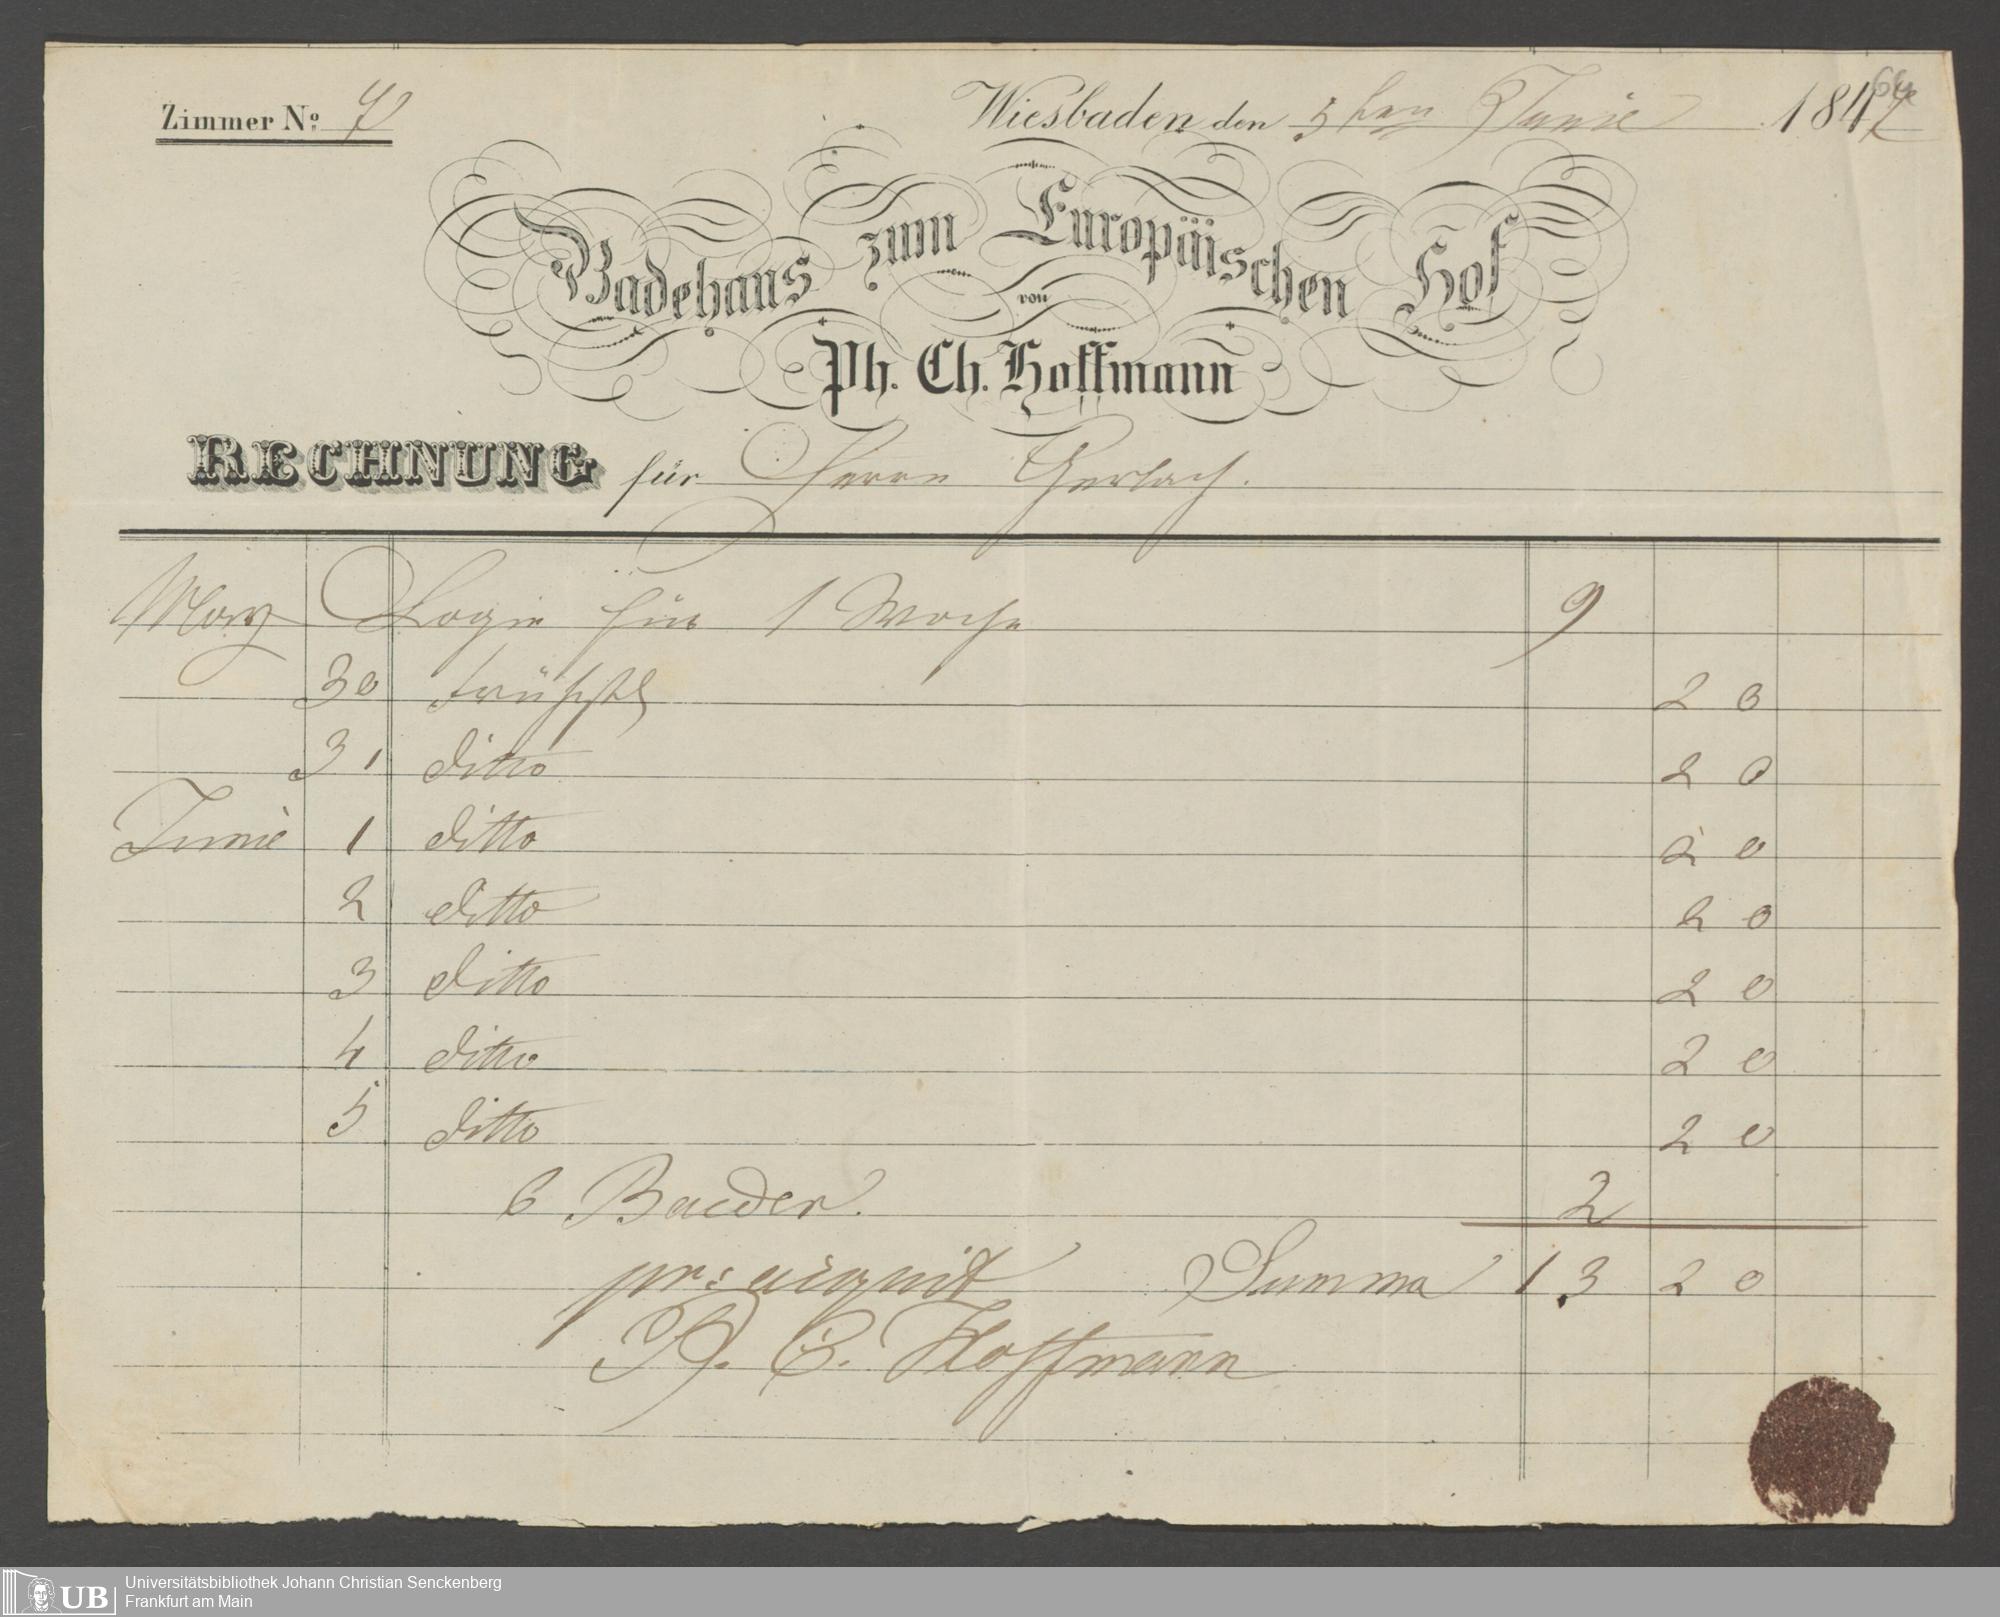 Zimmer No. 7
Wiesbaden den 5ten Junie 1847
Badehaus zum Europäischen Hof
von
Ph. Ch. Hoffmann
RECHNUNG für Herrn Gerlach.
May Logie für 1 Woche 9
30 Frühst 20
31 ditto 20
Junie 1 ditto 20
2 ditto 20
3 ditto 20
4 ditto 20
5 ditto 20
6 Baeder. 2
pr: aiquit Summa 13 20
P. C. Hoffmann
UB
Universitätsbibliothek Johann Christian Senckenberg
Frankfurt am Main